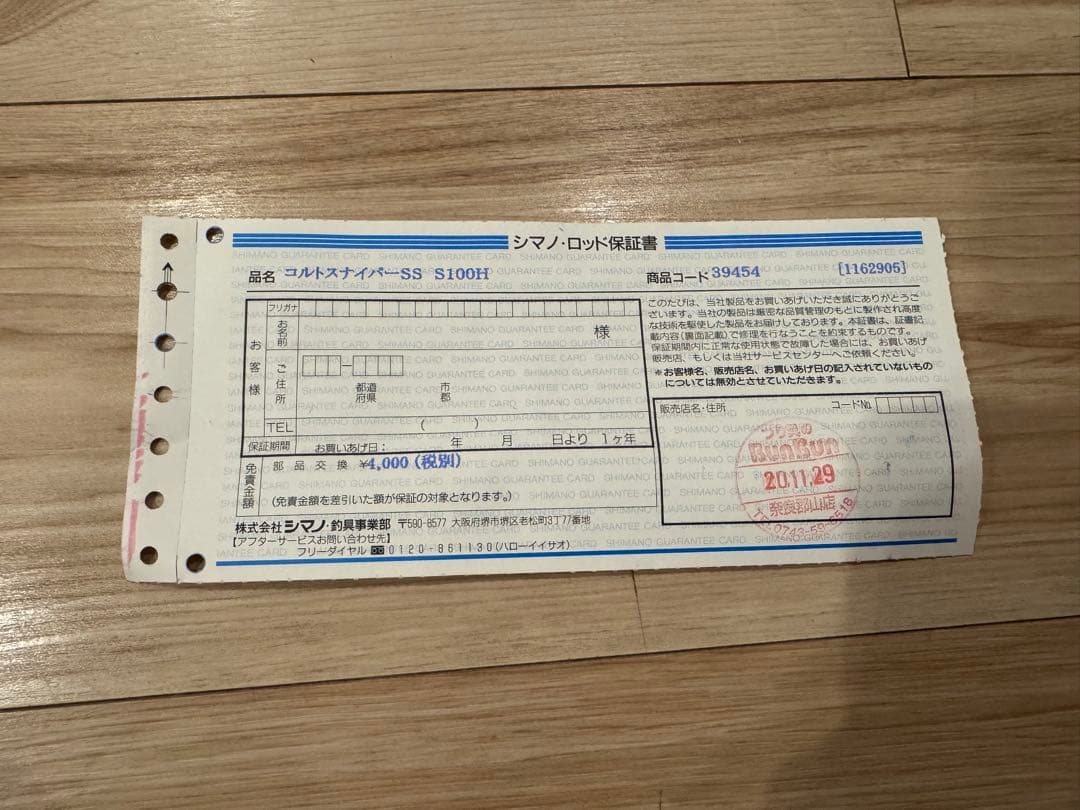 シマノ・ロッド保証書
品名 コルトスナイパーSS S100H
商品コード 39454 [1162905]
フリガナ
お客様
お名前
様
ご住所
都道府県
市郡
TEL ( )
保証期間 お買いあげ日: 年 月 日より 1ヶ年
免責金額
部品交換 ¥4,000(税別)
(免責金額を差引いた額が保証の対象となります。)
株式会社シマノ・釣具事業部 〒590-8577 大阪府堺市堺区老松町3丁77番地
【アフターサービスお問い合わせ先】
フリーダイヤル 0120-861130(ハローイイサオ)
このたびは、当社製品をお買いあげいただき誠にありがとうご
ざいます。当社の製品は厳密な品質管理のもとに製作され高度
な技術を駆使した製品をお届けしております。本証書は、証書記
載内容(裏面記載)で修理を行なうことを約束するものです。
保証期間内に正常な使用状態で故障した場合には、お買いあげ
販売店、もしくは当社サービスセンターへご依頼ください。
*お客様名、販売店名、お買いあげ日の記入されていないもの
については無効とさせていただきます。
販売店名・住所 コード№
つり具の
BunBun
20.11.29
奈良郡山店
TEL0743-59-6518
SHIMANO GUARANTEE CARD